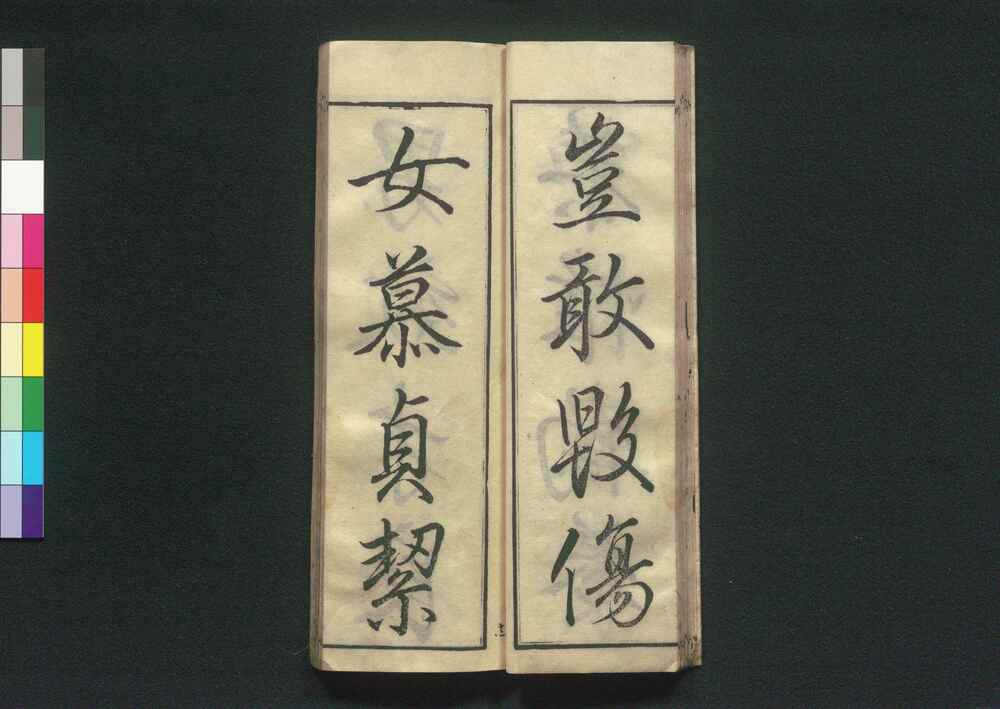 豈敢毀傷
女慕貞絜